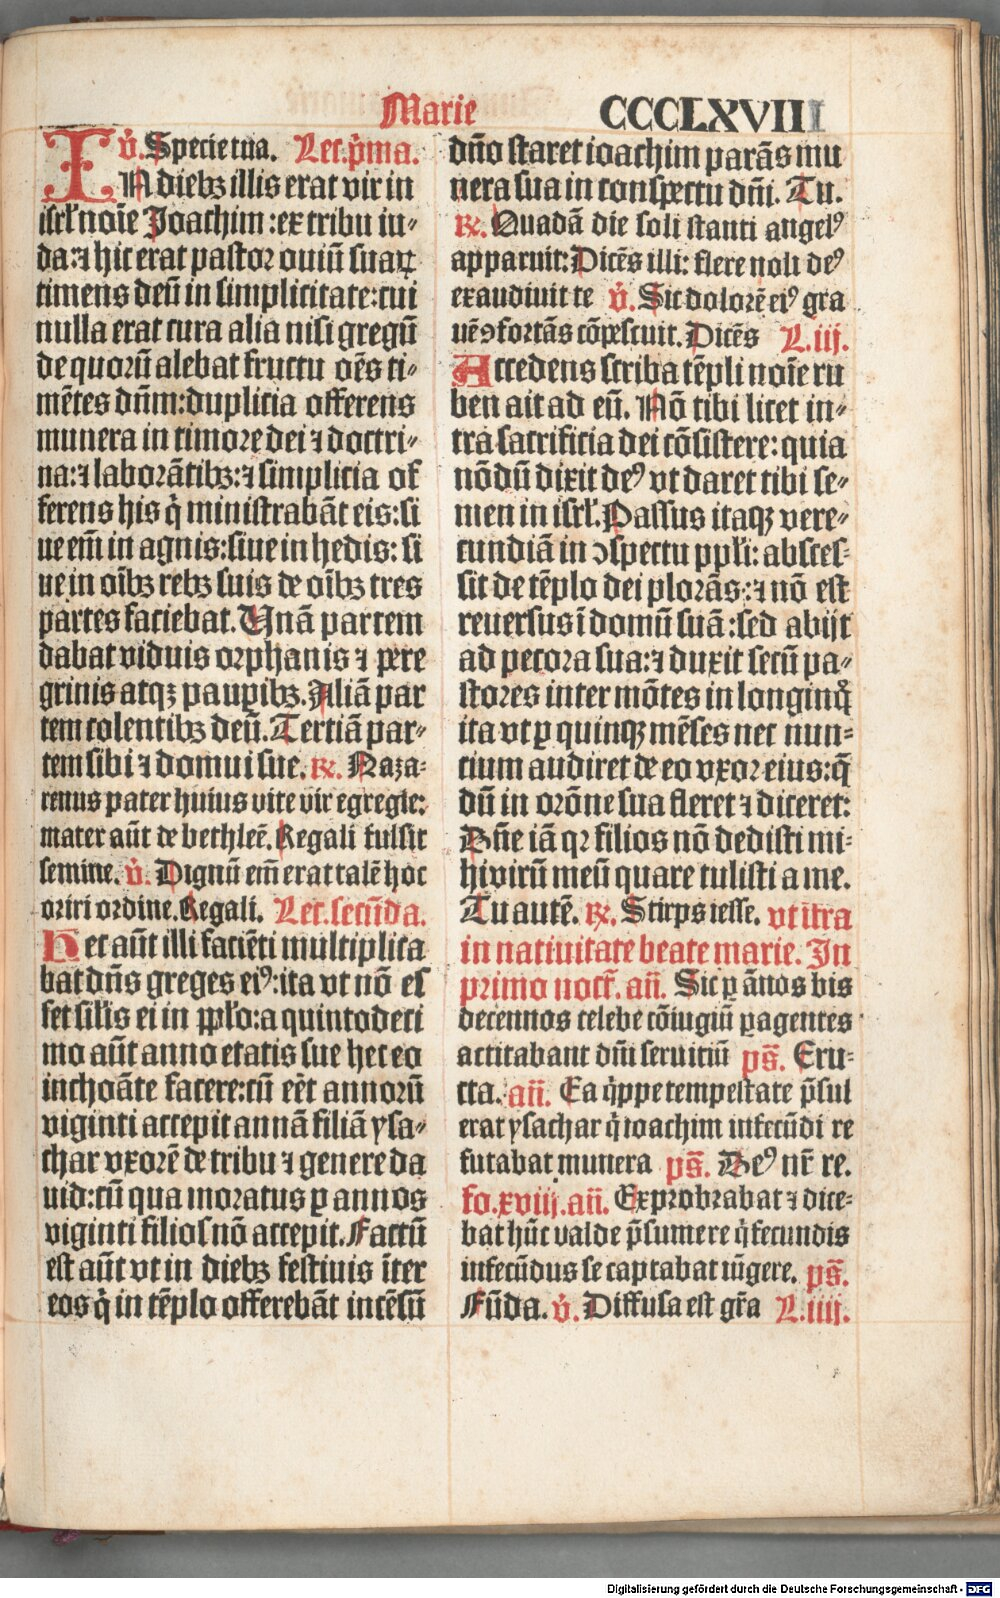 Marie CCCCLXVIII
v̇. Specie tua. Lec. p̄ma.
IN diebꝫ illis erat vir in
isrl' noīe Joachim : ex tribu iu⸗
da: ⁊ hic erat pastor ouiū suaꝝ
timens deū in simplicitate: cui
nulla erat cura alia nisi gregū
de quorū alebat fructu oēs ti⸗
mētes dn̄m: duplicia offerens
munera in timore dei ⁊ doctri⸗
na: ⁊ laborātibꝫ: ⁊ simplicia of
ferens his q̇ ministrabāt eis: si
ue em̄ in agnis: siue in hedis: si
ue in oībꝫ rebꝫ suis de oībꝫ tres
partes faciebat. Unā partem
dabat viduis orphanis ⁊ pere
grinis atqꝫ paup̱ibꝫ. Aliā par
tem colentibꝫ deū. Tertiā par⸗
tem sibi ⁊ domui sue. ℟. Naza⸗
renus pater huius vite vir egregie:
mater aūt de bethleē. Regali fulsit
semine. v̇. Dignū em̄ erat talē hoc
oriri ordine. Regali. Lec. secūda.
Hec aūt illi faciēti multiplica
bat dn̄s greges eiꝰ: ita vt nō es
set silīs ei in pp̄lo: a quintodeci
mo aūt anno etatis sue hec eo
inchoāte facere: cū eēt annorū
viginti accepit annā filiā ysa⸗
char vxorē de tribu ⁊ genere da
uid: cū qua moratus ꝑ annos
viginti filios nō accepit. Factū
est aūt vt in diebꝫ festiuis īter
eos q̇ in tēplo offerebāt incēsū
dn̄o staret ioachim parās mu
nera sua in conspectu dn̄i. Tu.
℟. Quadā die soli stanti angelꝰ
apparuit: Dicēs illi: flere noli deꝰ
exaudiuit te v̇. Sic dolorē eiꝰ gra
uē ↄfortās cōpescuit. Dicēs L. iij.
Accedens scriba tēpli noīe ru
ben ait ad eū. Nō tibi licet in⸗
tra sacrificia dei cōsistere: quia
nōdū dixit deꝰ vt daret tibi se⸗
men in isrl'. Passus itaqꝫ vere⸗
cundiā in ↄspectu pp̄li: absces⸗
sit de tēplo dei plorās: ⁊ nō est
reuersus ī domū suā: sed abijt
ad pecora sua: ⁊ duxit secū pa⸗
stores inter mōtes in longinq̊
ita vt ꝑ quinqꝫ mēses nec nun⸗
cium audiret de eo vxor eius: q̄
dū in orōne sua fleret ⁊ diceret:
Dn̄e iā qꝛ filios nō dedisti mi⸗
hi virū meū quare tulisti a me.
Tu autē. ℟. Stirps iesse. vt ītra
in natiuitate beate marie. In
primo noct̄. an̄. Sic ꝑ ānos bis
decennos celebe cōiugiū ꝑagentes
actitabant dn̄i seruitiū ps̄. Eru⸗
cta. an̄. Ea q̇ppe tempestate p̄sul
erat ysachar q̇ ioachim infecūdi re
futabat munera ps̄. Deꝰ nr̄ re.
fo. xviij. an̄. Exprobrabat ⁊ dice⸗
bat hūc valde p̄sumere q̇ fecundis
infecūdus se captabat iūgere. ps̄.
Fūda. v̇. Diffusa est gr̄a L. iiij.
Digitalisierung gefördert durch die Deutsche Forschungsgemeinschaft - DFG